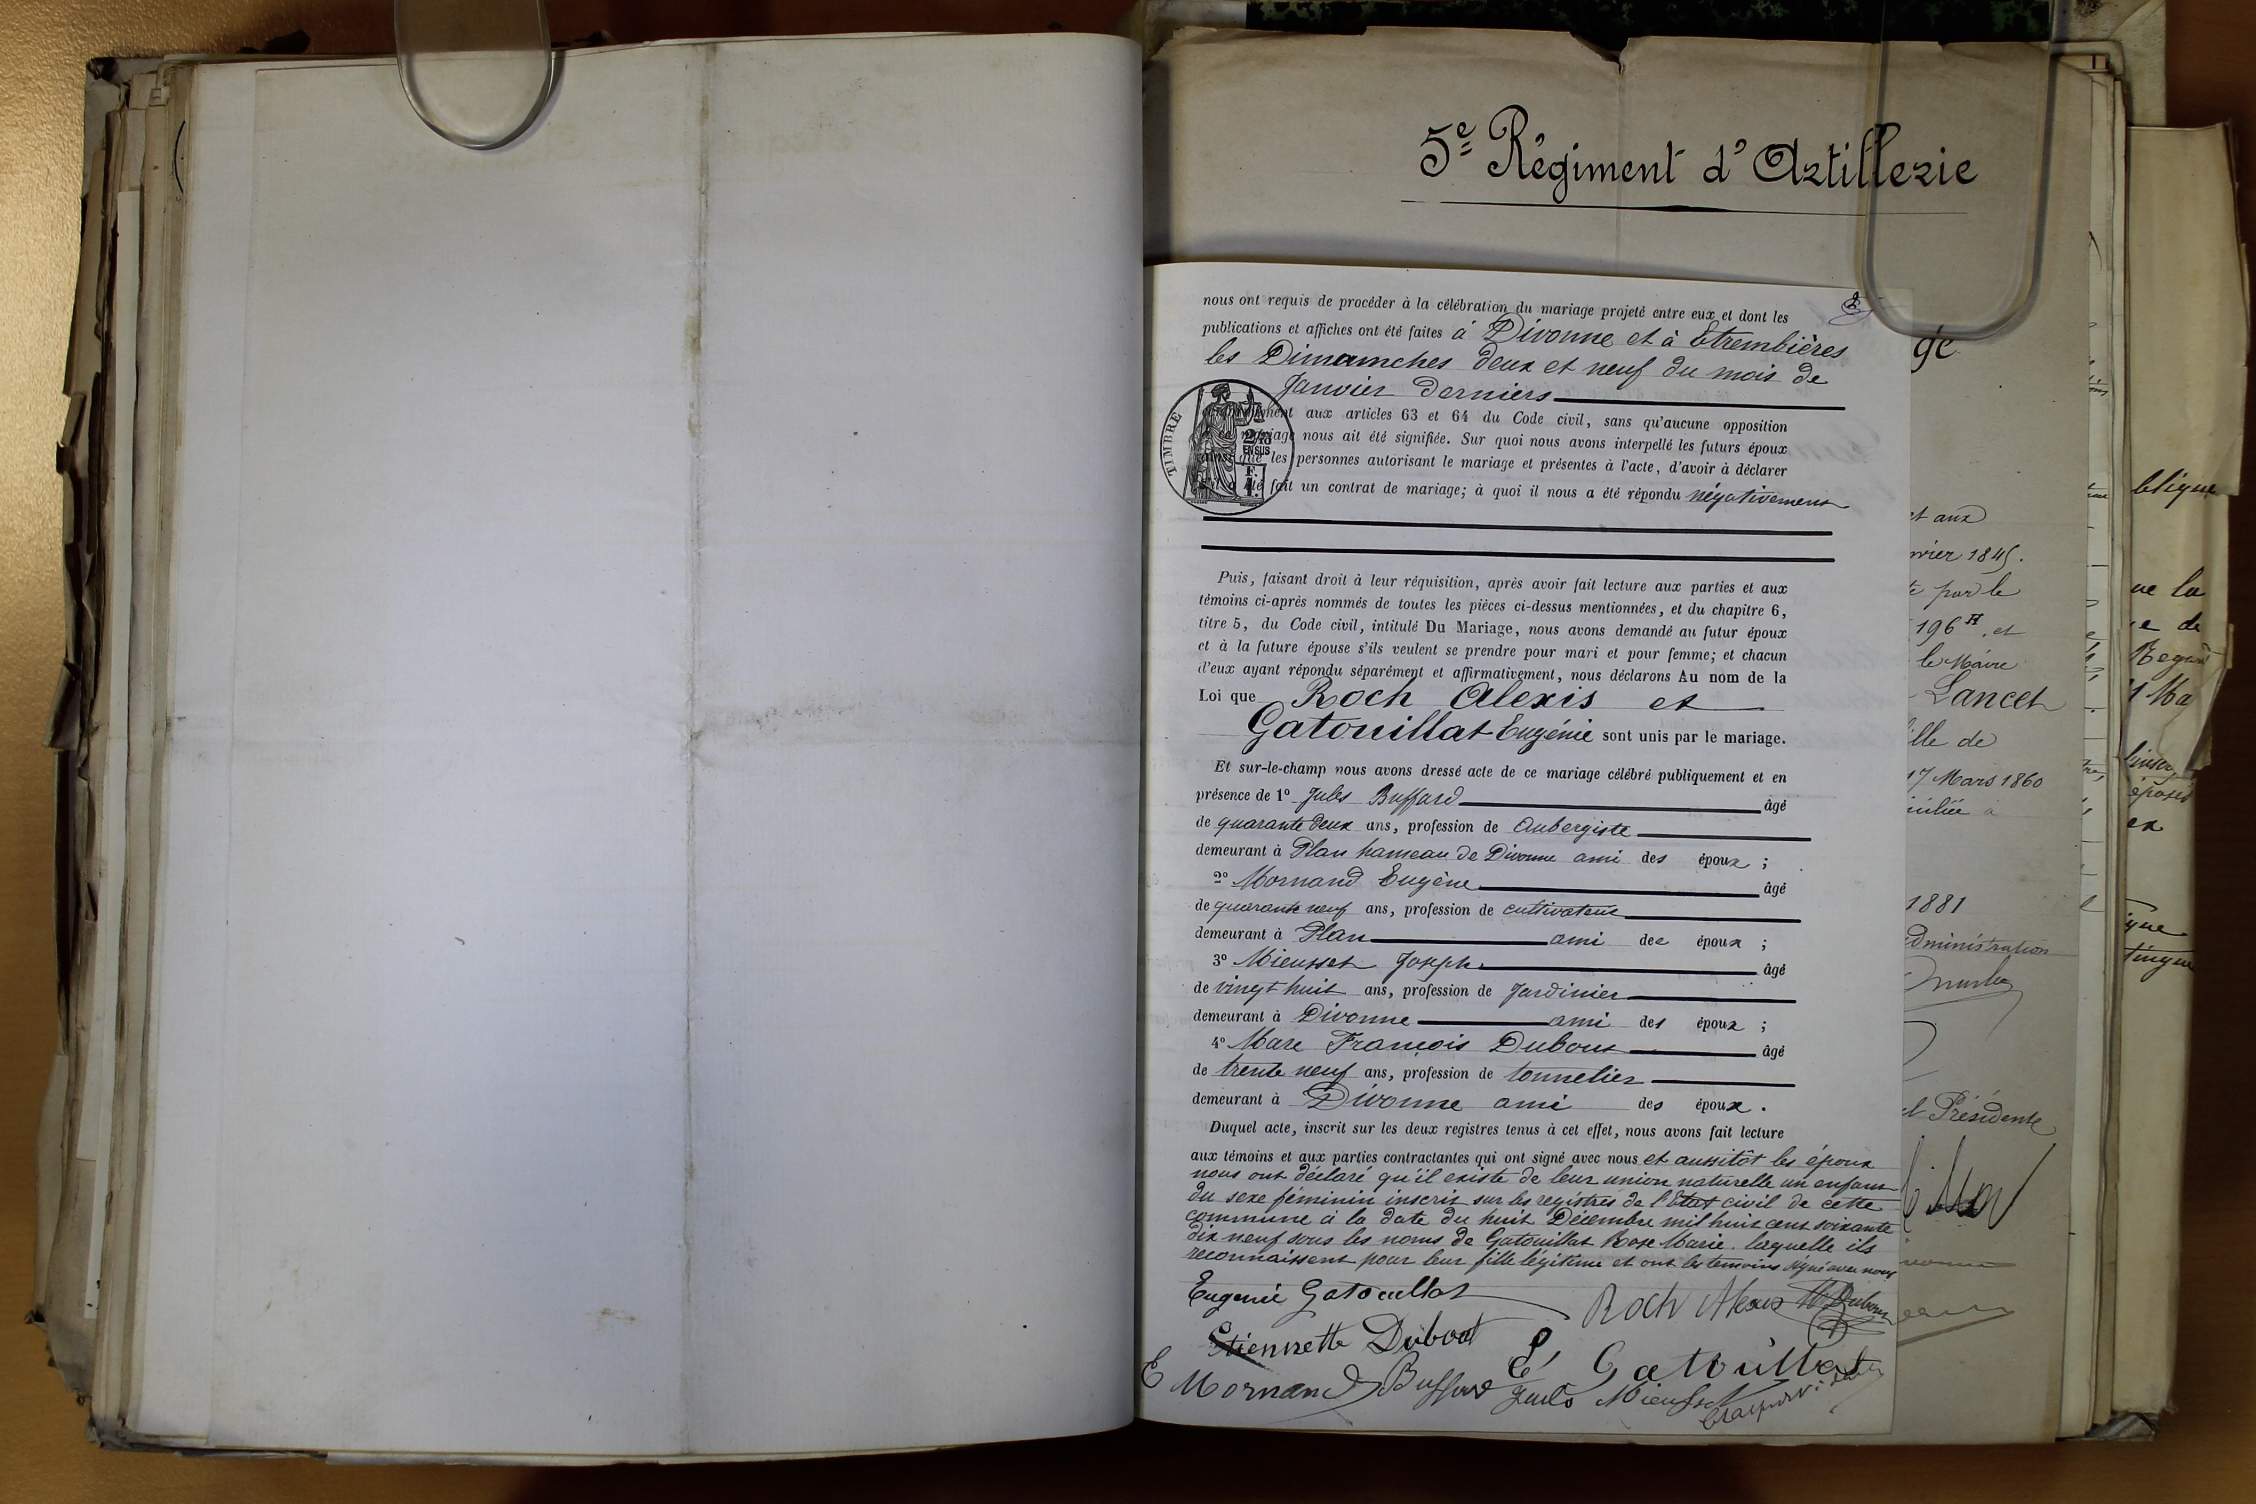 5e Régiment d'Artillerie
nous ont requis de procéder à la célébration du mariage projeté entre eux et dont les
publications et affiches ont été faites à Divonne et à Etrembières
les Dimanches deux et neuf du mois de
Janvier derniers
aux articles 63 et 64 du Code civil, sans qu'aucune opposition
mariage nous ait été signifiée. Sur quoi nous avons interpellé les futurs époux
ainsi que les personnes autorisant le mariage et présentes à l'acte, d'avoir à déclarer
s'il a été fait un contrat de mariage; à quoi il nous a été répondu négativement
TIMBRE
2/10
EN SUS
Puis, faisant droit à leur réquisition, après avoir fait lecture aux parties et aux
témoins ci-après nommés de toutes les pièces ci-dessus mentionnées, et du chapitre 6,
titre 5, du Code civil, intitulé Du Mariage, nous avons demandé au futur époux
et à la future épouse s'ils veulent se prendre pour mari et pour femme; et chacun
d'eux ayant répondu séparément et affirmativement, nous déclarons Au nom de la
Loi que Roch Alexis et
Gatouillat Eugénie sont unis par le mariage.
Et sur-le-champ nous avons dressé acte de ce mariage célébré publiquement et en
présence de 1° Jules Buffard âgé
de quarante deux ans, profession de Aubergiste
demeurant à Plan hameau de Divonne ami des époux ;
2° Mornand Eugène âgé
de quarante neuf ans, profession de cultivateur
demeurant à Plan ami des époux ;
3° Mieusset Joseph âgé
de vingt huit ans, profession de Jardinier
demeurant à Divonne ami des époux ;
4° Marc François Dubout âgé
de trente neuf ans, profession de tonnelier
demeurant à Divonne ami des époux.
Duquel acte, inscrit sur les deux registres tenus à cet effet, nous avons fait lecture
aux témoins et aux parties contractantes qui ont signé avec nous et aussitôt les époux
nous ont déclaré qu'il existe de leur union naturelle un enfant
du sexe féminin inscrit sur les registres de l'Etat civil de cette
commune à la date du huit Décembre mil huit cent soixante
dix neuf sous les noms de Gatouillat Rose Marie. laquelle ils
reconnaissent pour leur fille légitime et ont les temoins signé avec nous
Eugenie Gatouillat Roch Alexis M Dubout
Etiennette Dubout É Gatouillat
E Mornand Buffard Jules Mieusset
gé
et aux
nvier 1845.
te par le
196 H, et
le Maire
Lancet
ille de
17 Mars 1860
iciliée à
1881
dministration
l Présidente
blique
ue la
e de
époses